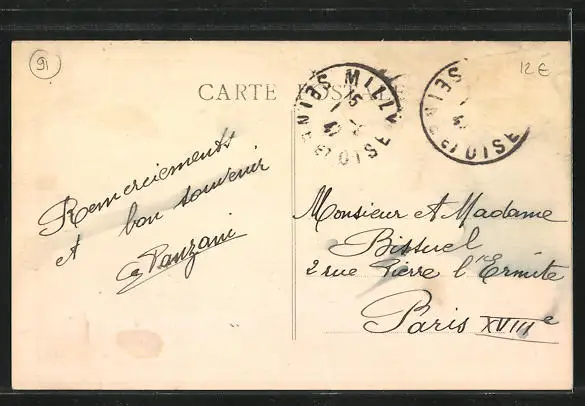 91
12€
CARTE POSTALE
MILLY
SEINE ET OISE
15
SEINE ET OISE
Remerciements
et bon souvenir
Panzani
Monsieur et Madame
Bissuel
2 rue Pierre l'Ermite
Paris XVIIIe